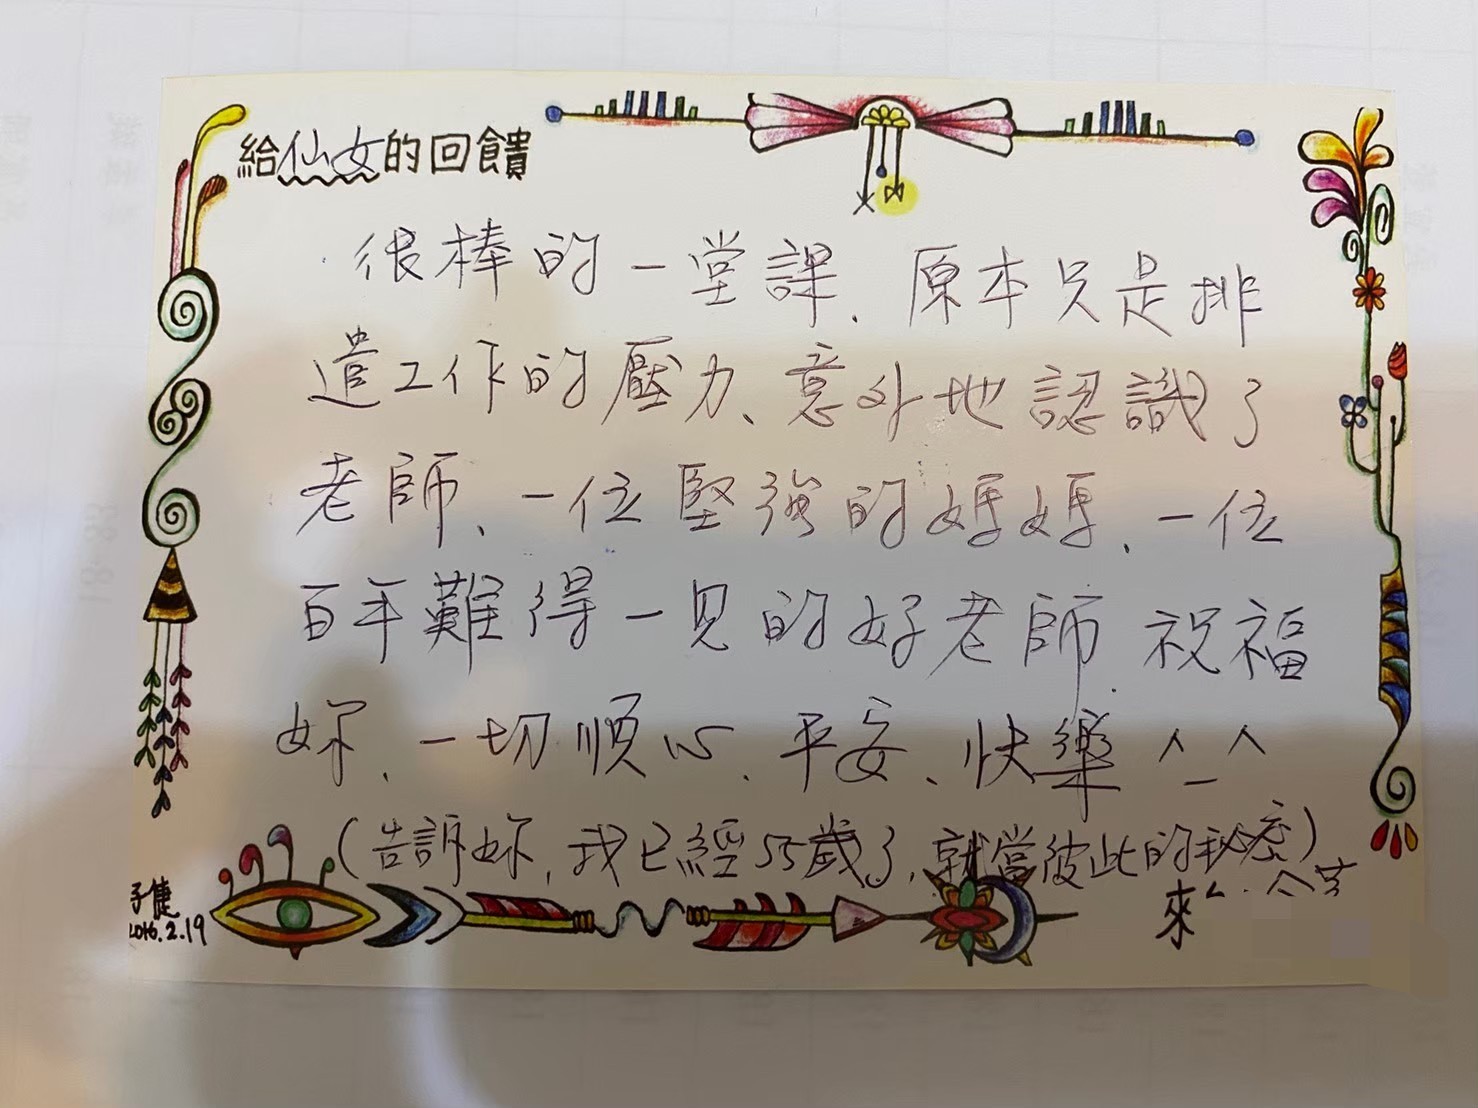 給仙女的回饋
很棒的一堂課、原本只是排
遣工作的壓力、意外地認識了
老師、一位堅強的媽媽、一位
百年難得一見的好老師.祝福
妳、一切順心、平安、快樂^_^
(告訴妳,我已經55歲了,就當彼此的秘密)
來
子倢
2016.2.19